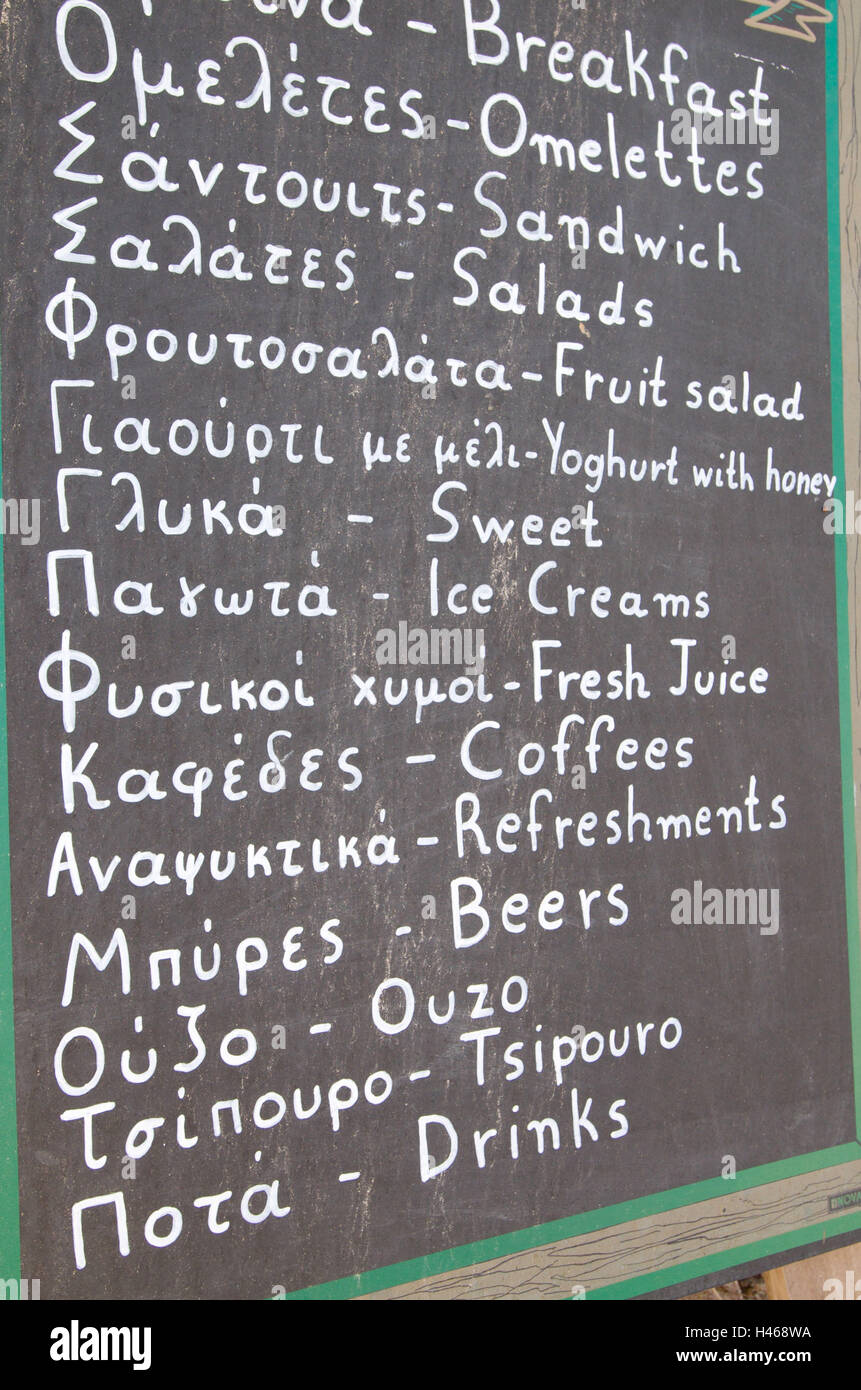 - Breakfast
Ομελέτες - Omelettes
Σάντουιτς - Sandwich
Σαλάτες - Salads
Φρουτοσαλάτα - Fruit salad
Γιαούρτι με μέλι - Yoghurt with honey
Γλυκά - Sweet
Παγωτά - Ice Creams
Φυσικοί χυμοί - Fresh Juice
Καφέδες - Coffees
Αναψυκτικά - Refreshments
Μπύρες - Beers
Ούζο - Ouzo
Τσίπουρο - Tsipouro
Ποτά - Drinks
alamy
Image ID: H468WA
www.alamy.com